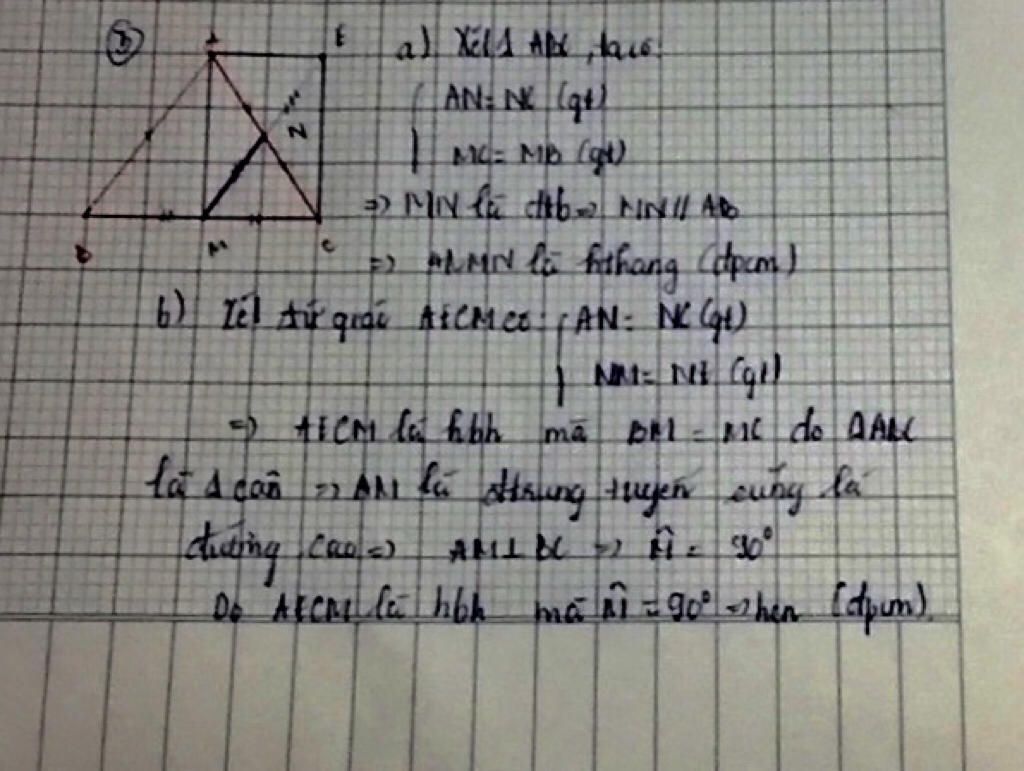 3
A E
N
B M C
a) Xét Δ ABC, ta có:
AN = NC (gt)
MC = MB (gt)
=> MN là đtb => MN // AB
=> là hthang (đpcm)
b) Xét tứ giác AECM có: AN = NC (gt)
NM = NE (gt)
=> AECM là hbh mà BM = MC do ΔABC
là Δ cân => AM là đtrung tuyến cũng là
đường cao => AM ⊥ BC => M̂ = 90°
Do AECM là hbh mà M̂ = 90° => hcn (đpcm)